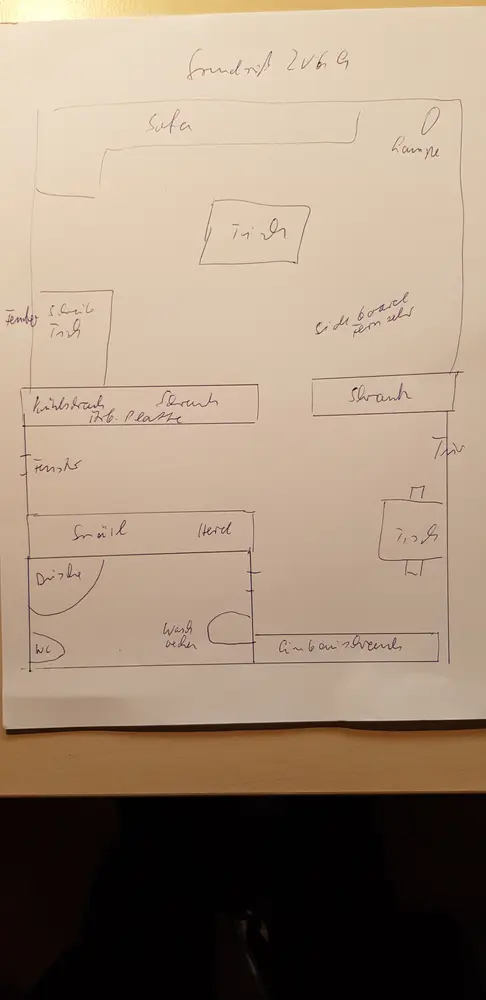 Grundriß
Sofa
Lampe
Tisch
Fenster
Schreib
Tisch
Sideboard
Fernseher
Kühlschrank Schrank
Arb. Platte
Schrank
Fenster
Tür
Spüle Herd
Tisch
Dusche
Wasch
becken
WC
Einbauschrank